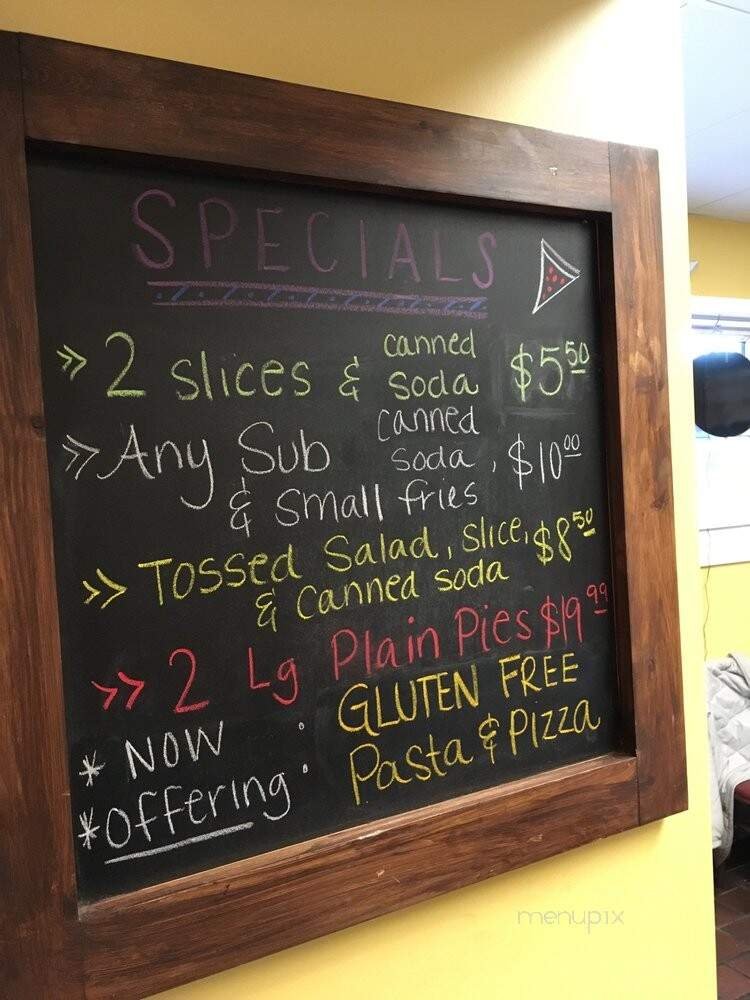 SPECIALS
>> 2 slices & canned soda $5.50
>> Any Sub canned soda, $10.00
& small fries
>> Tossed Salad, slice, $8.50
& canned soda
>> 2 Lg Plain Pies $19.99
* NOW : GLUTEN FREE
*offering Pasta & Pizza
menupix